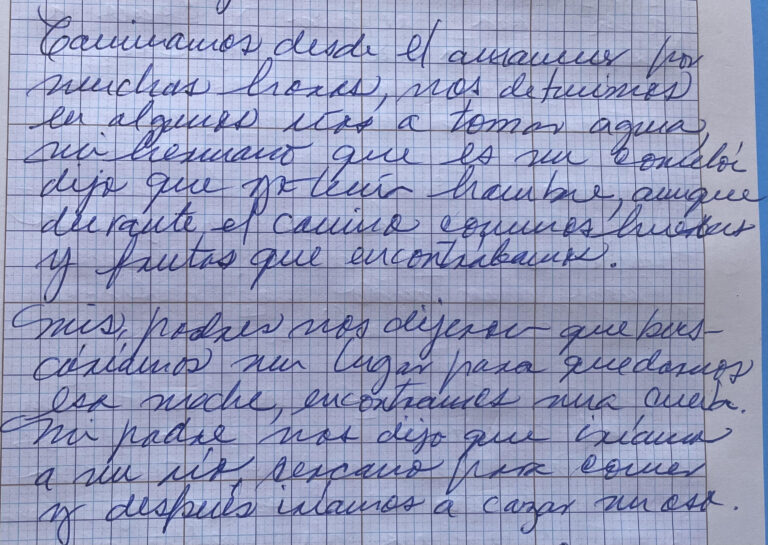 Caminamos desde el amanecer por
muchas horas, nos detuvimos
en algunos ríos a tomar agua,
mi hermano que es un
dijo que ya tenía hambre, aunque
durante el camino comimos
y frutas que encontrábamos.
Mis padres nos dijeron que bus-
caríamos un lugar para quedarnos
esa noche, encontramos una cueva.
Mi padre nos dijo que iríamos
a un río, sercano para comer
y después iríamos a cazar un oso.